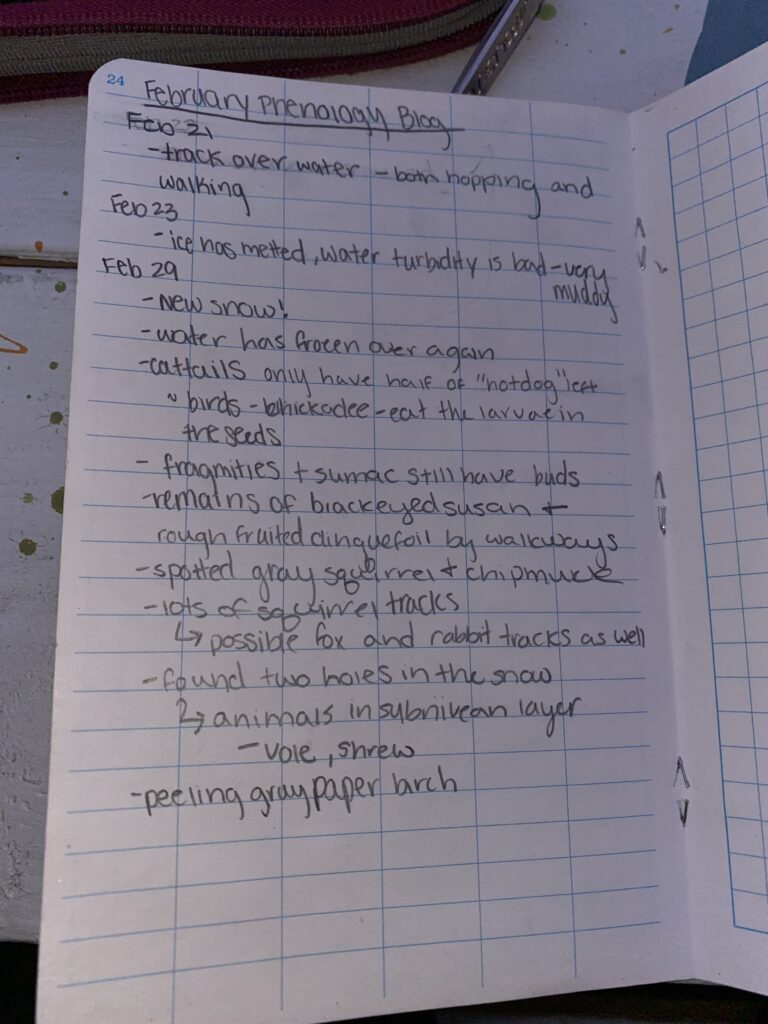 24
February Phenology Blog
Feb 21
-track over water - both hopping and
walking
Feb 23
-ice has melted, water turbidity is bad-very
muddy
Feb 29
-New snow!
-water has frozen over again
-cattails only have half of "hotdog" left
~ birds - chickadee - eat the larvae in
the seeds
- fragmities + sumac still have buds
-remains of blackeyed susan +
rough fruited cinquefoil by walkways
-spotted gray squirrel + chipmuck
-lots of squirrel tracks
↳ possible fox and rabbit tracks as well
-found two holes in the snow
↳ animals in subnivean layer
- vole, shrew
-peeling gray paper birch